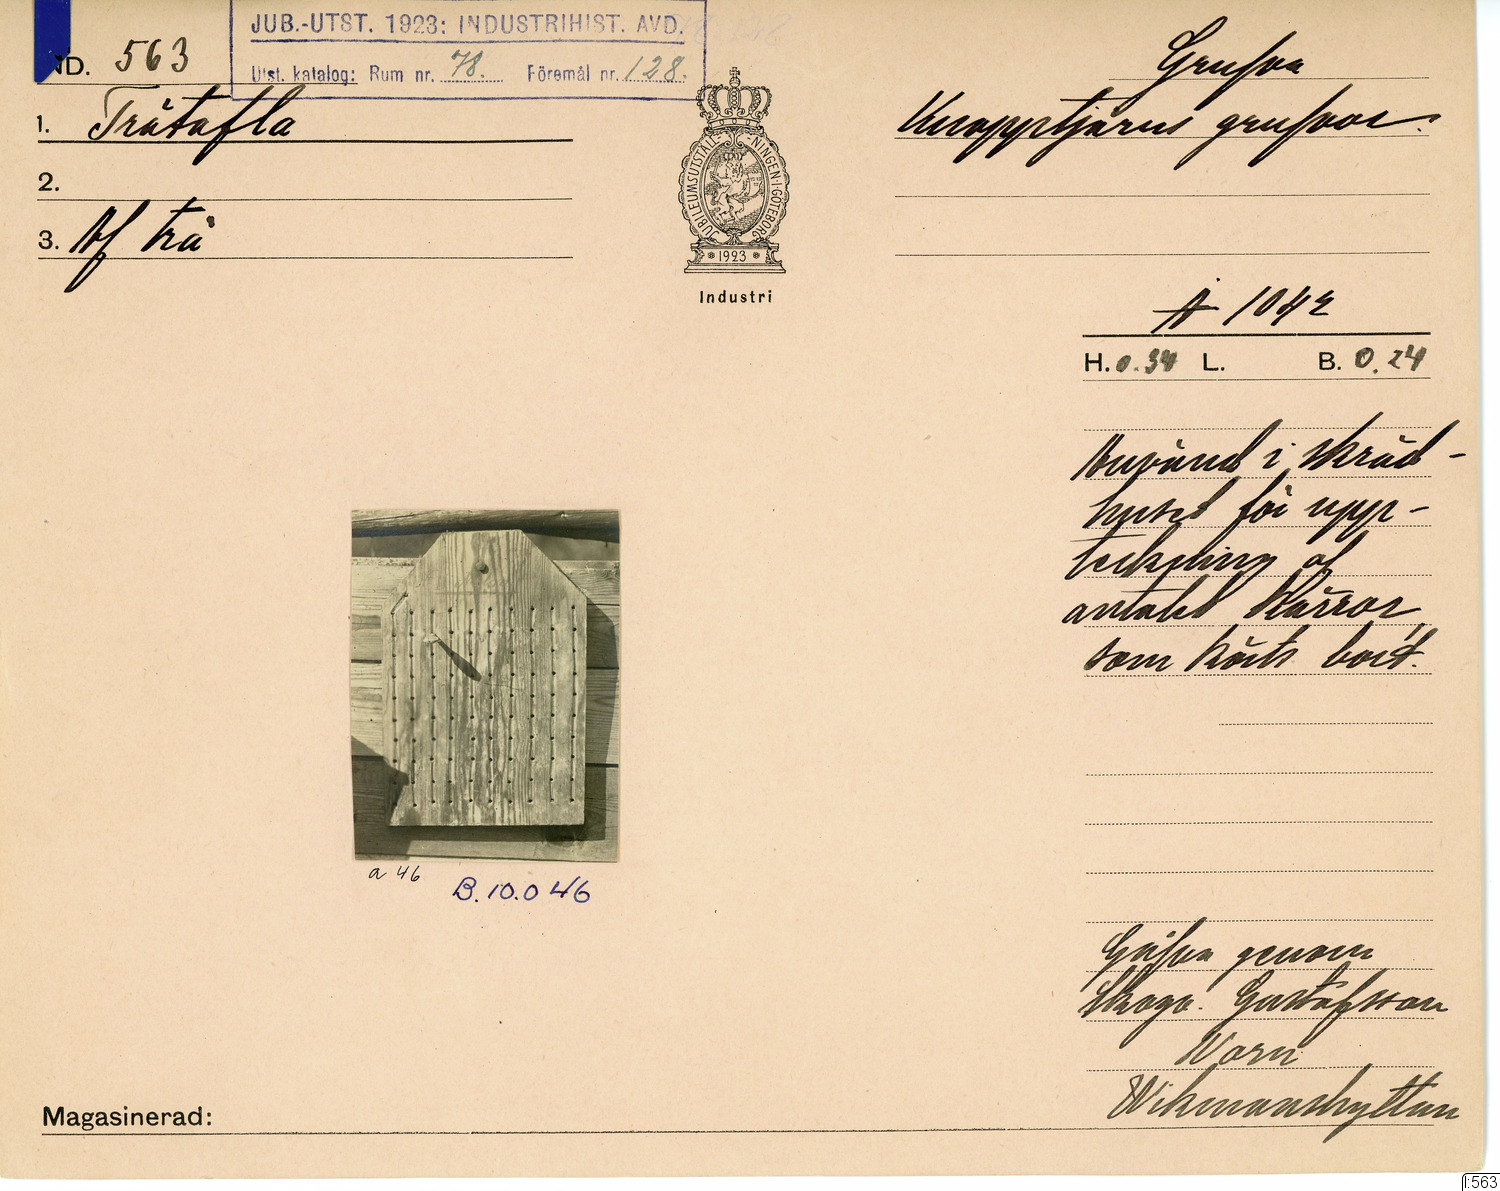 JUB.-UTST. 1923: INDUSTRIHIST. AVD.
Utst. katalog: Rum nr. 78. Föremål nr. 128.
ND. 563
1. Trätafla
2.
3. Af trä
JUBILEUMSUTSTÄLLNINGEN·I·GÖTEBORG
1923
Industri
Grufva
Knapptjärns grufvor.
A 1042
H. 0.34 L. B. 0.24
Använd i skräd-
huset för upp-
teckning af
antalet kärror,
som körts bort.
a 46
B.10.046
Gåfva genom
Skogv. Gustafsson
Norn
Wikmanshyttan
Magasinerad:
I:563